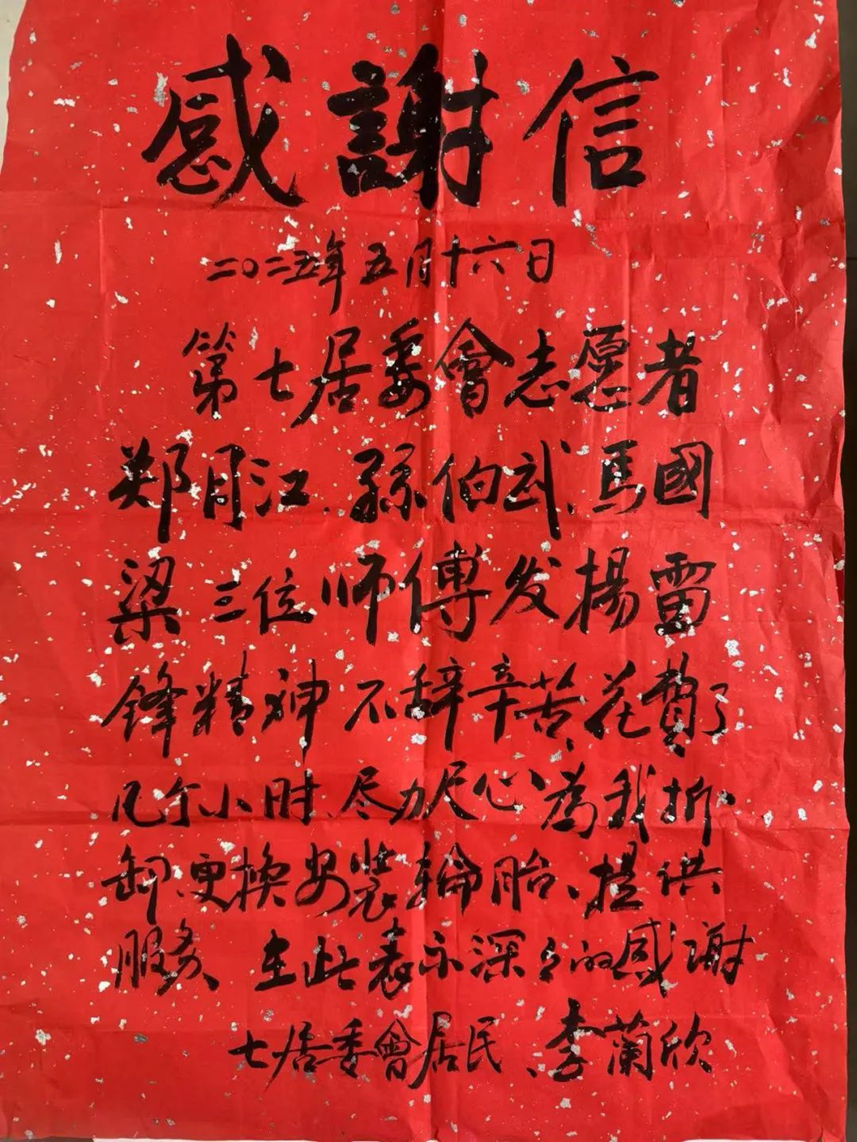 感謝信
二〇二五年五月十六日
第七居委會志愿者
郑月江、孫伯武、馬國
梁三位师傅发揚雷
锋精神不辞辛苦花費了
几个小时、尽力尽心為我拆
卸、更换安装輪胎、提供
服务 在此表示深々的感谢
七居委會居民、李蘭欣